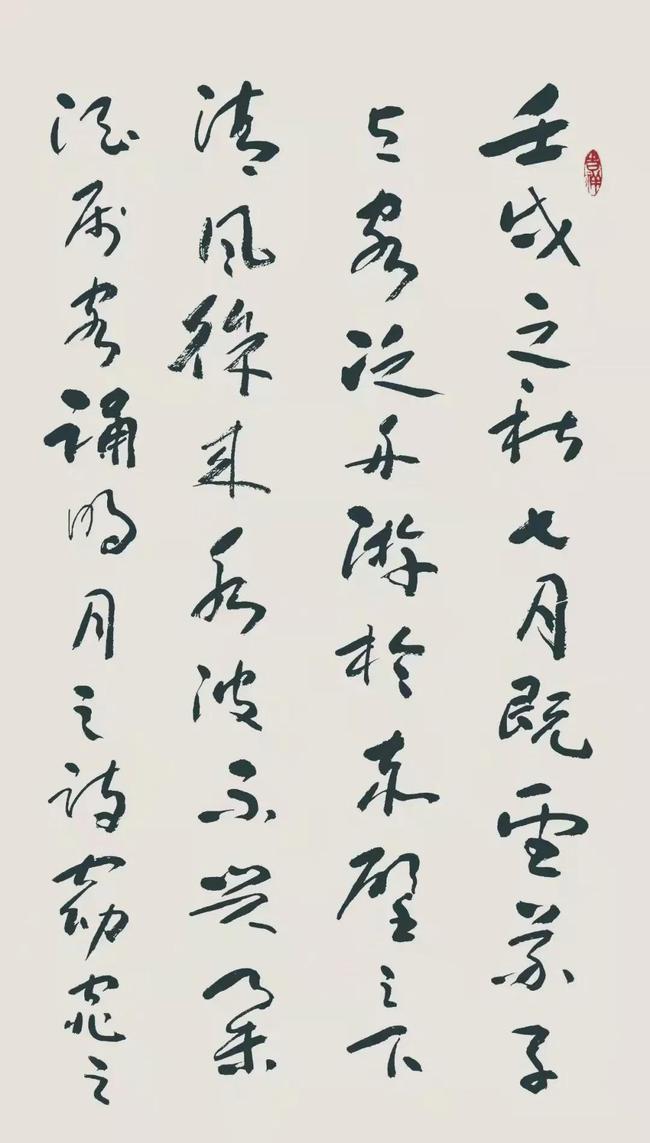 壬戌之秋七月既望苏子
与客泛舟游於赤壁之下
清风徐来水波不兴举
酒属客诵明月之诗窈窕之